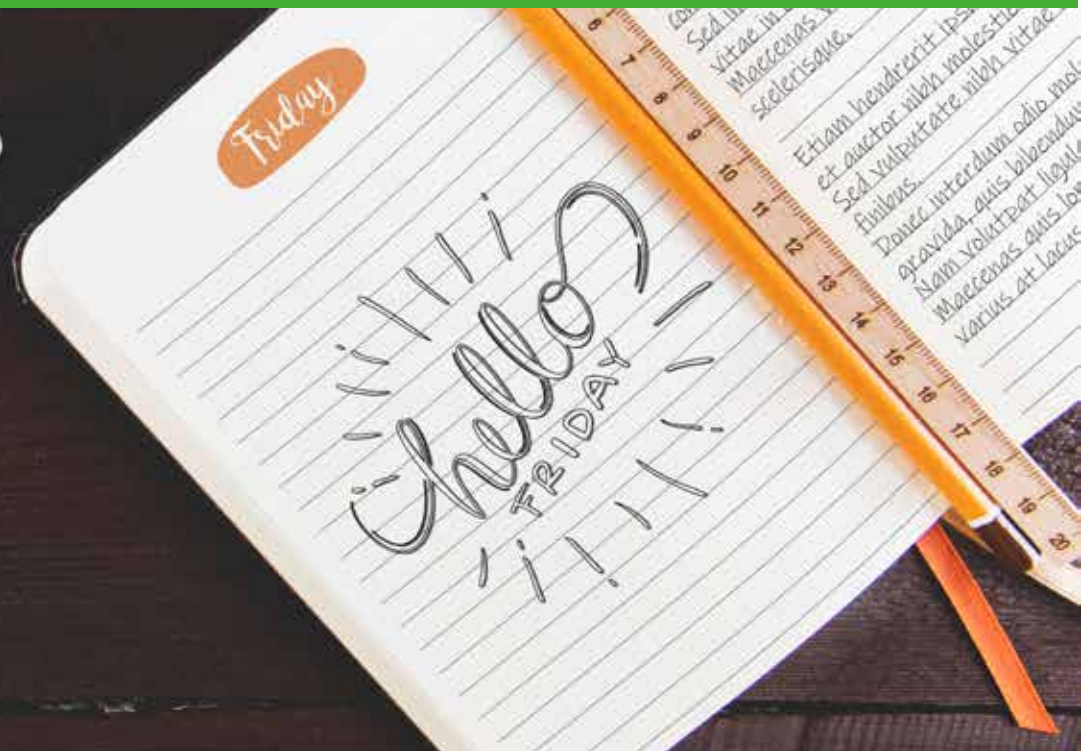 Friday
hello
FRIDAY
6 7 8 9 10 11 12 13 14 15 16 17 18 19 20
Sed in
vitae in
Maecenas
scelerisque.
Etiam hendrerit ipsu
et auctor nibh molestie
Sed vulputate nibh vitae
finibus.
Donec interdum odio mol
gravida, quis bibendum
Nam volutpat ligula
Maecenas quis
varius at lacus